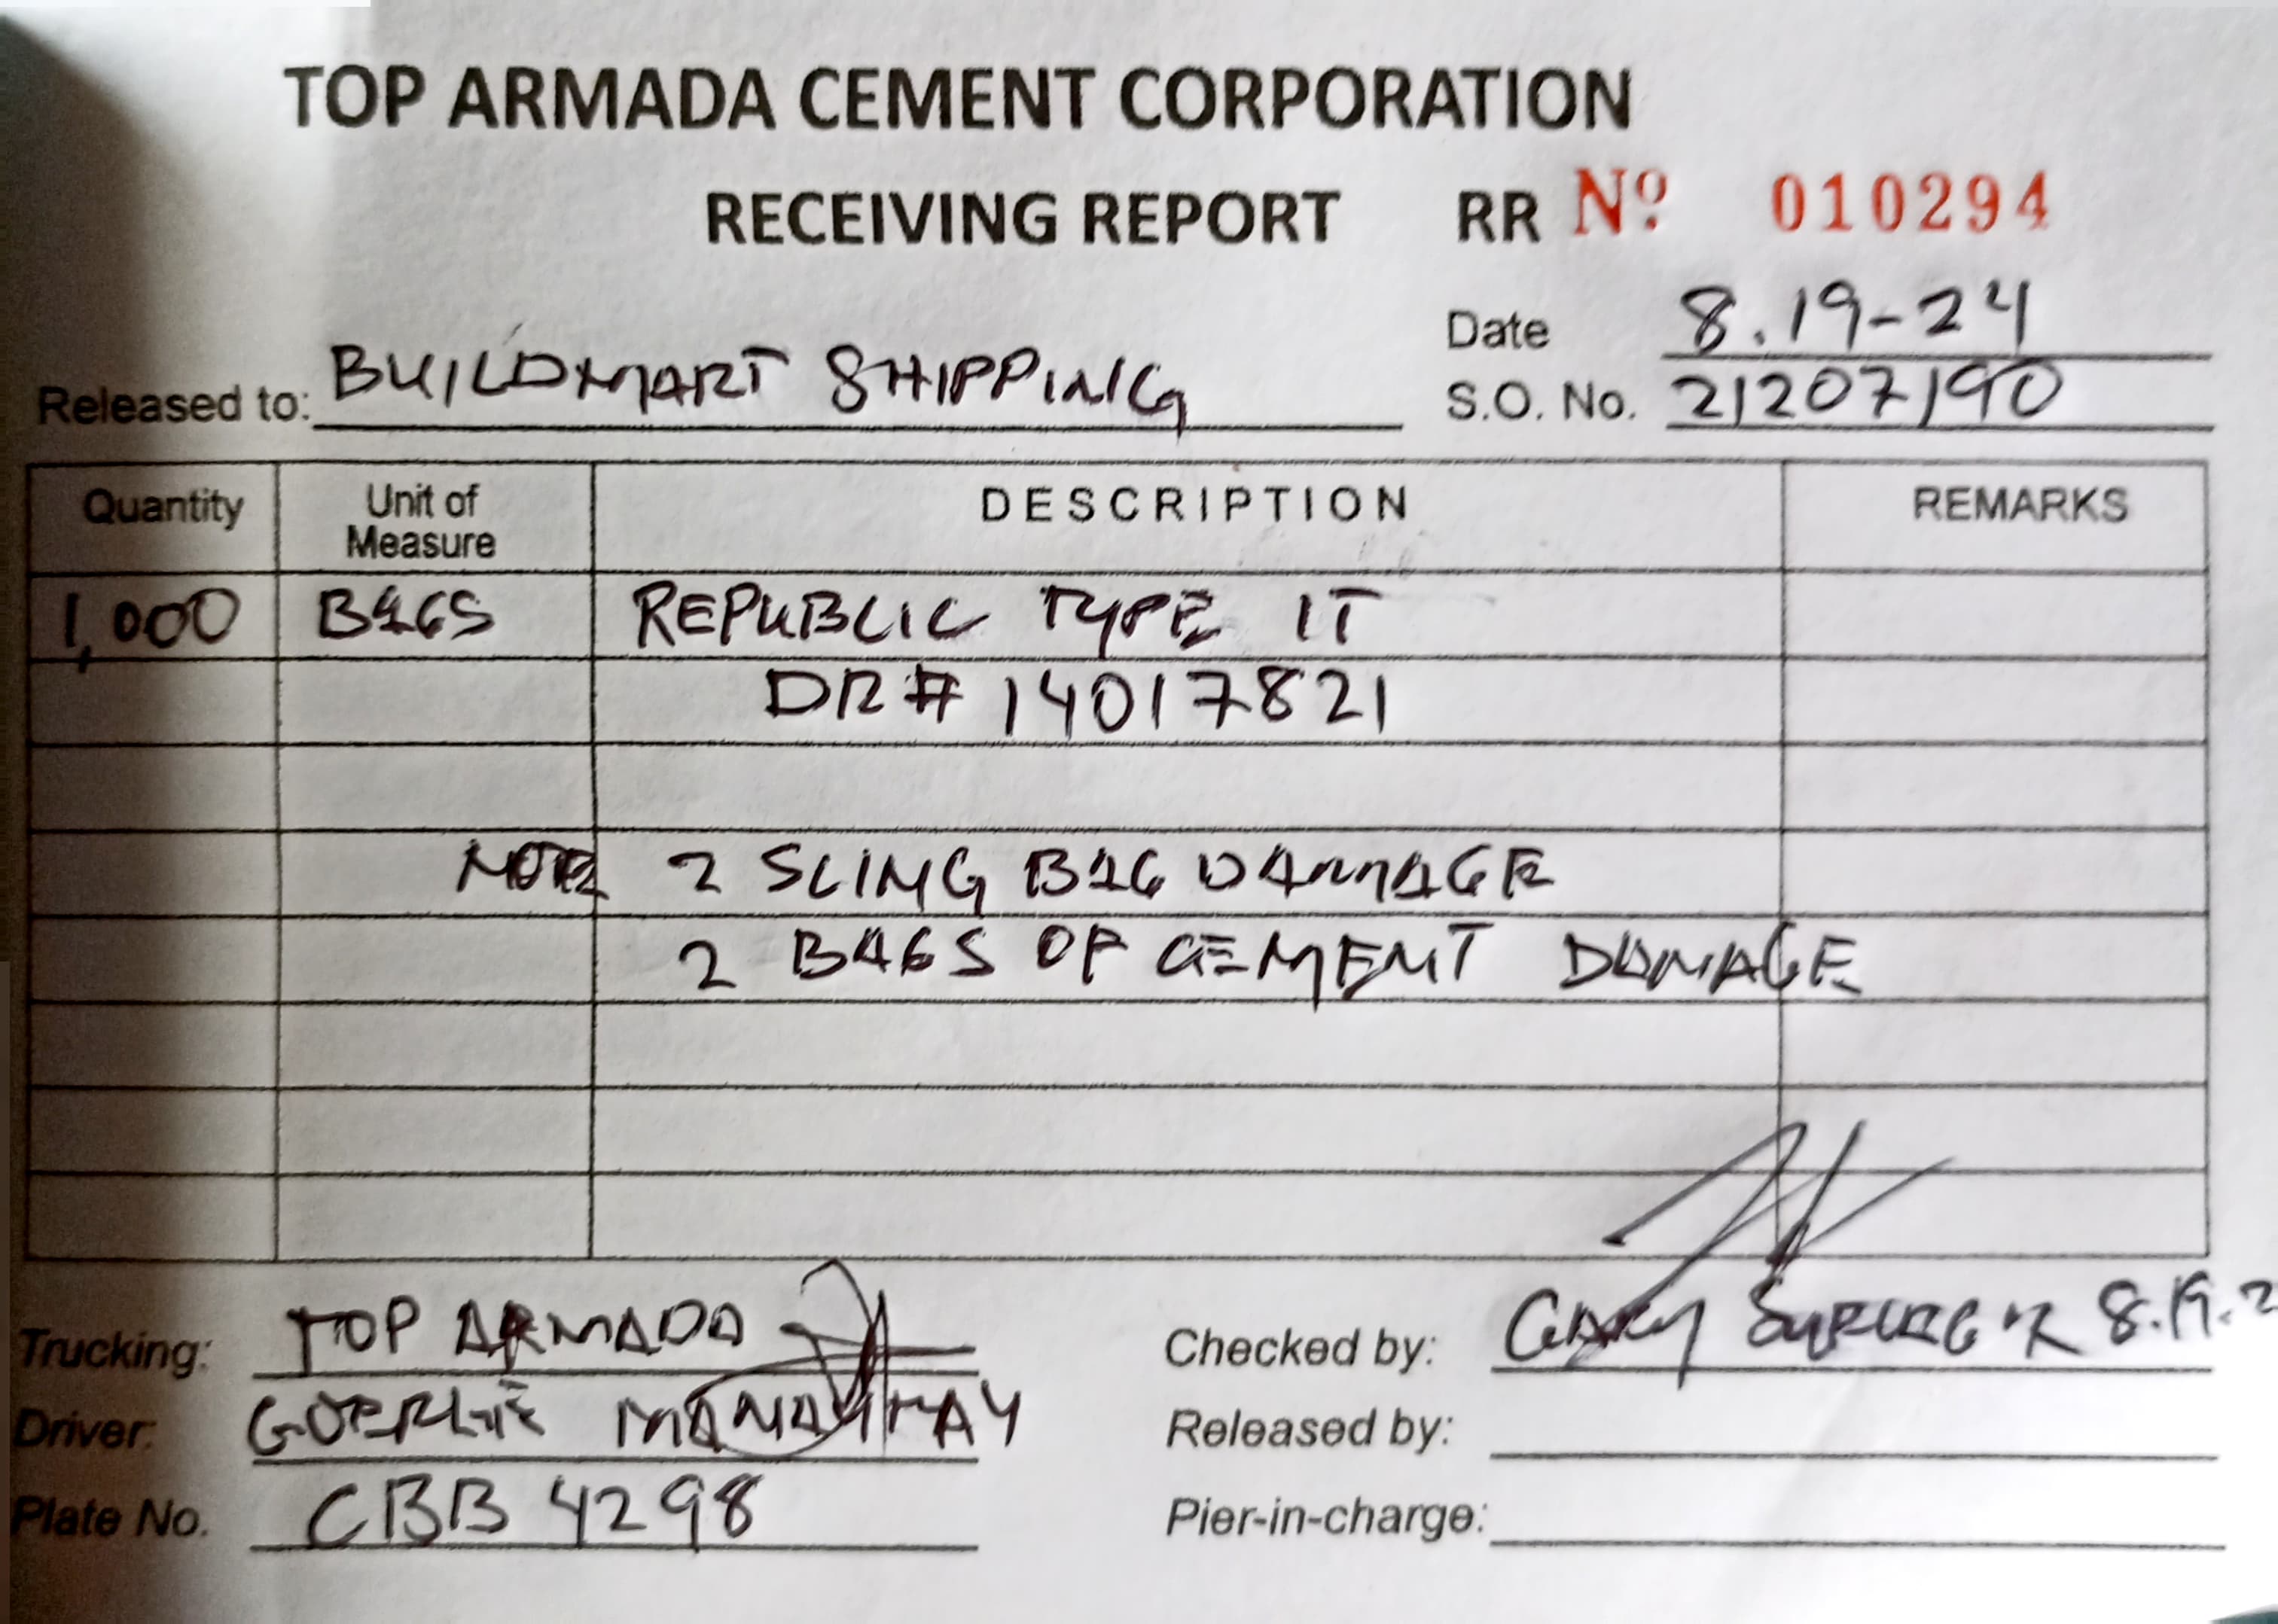 TOP ARMADA CEMENT CORPORATION
RECEIVING REPORT RR Nº 010294
Date 8.19-24
Released to: BUILDMART SHIPPING
S.O. No. 21207190
Quantity Unit of Measure DESCRIPTION REMARKS
1,000 BAGS REPUBLIC TYPE IT
DR# 14017821
NOTE 2 SLING BAG DAMAGE
2 BAGS OF CEMENT DAMAGE
Trucking: TOP ARMADA
Checked by: GARY 8.19.2
Driver:
Released by:
Plate No. CBB 4298
Pier-in-charge: